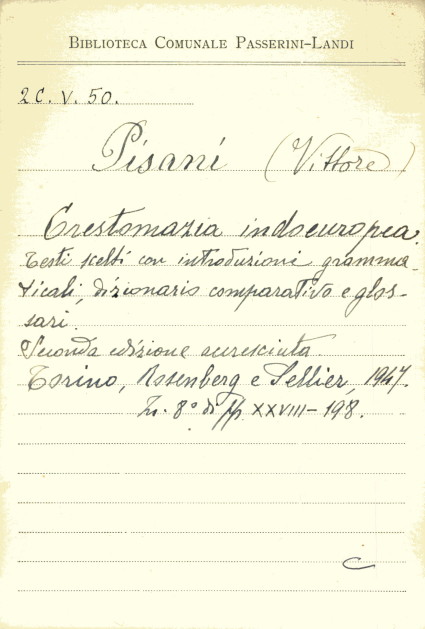 BIBLIOTECA COMUNALE PASSERINI-LANDI
2 C. V. 50.
Pisani (Vittore)
Crestomazia indoeuropea.
Testi scelti con introduzioni gramma-
ticali, dizionario comparativo e glos-
sari.
Seconda edizione accresciuta.
Torino, Rosenberg e Sellier, 1947.
In. 8° di pp. XXVIII-198.
C